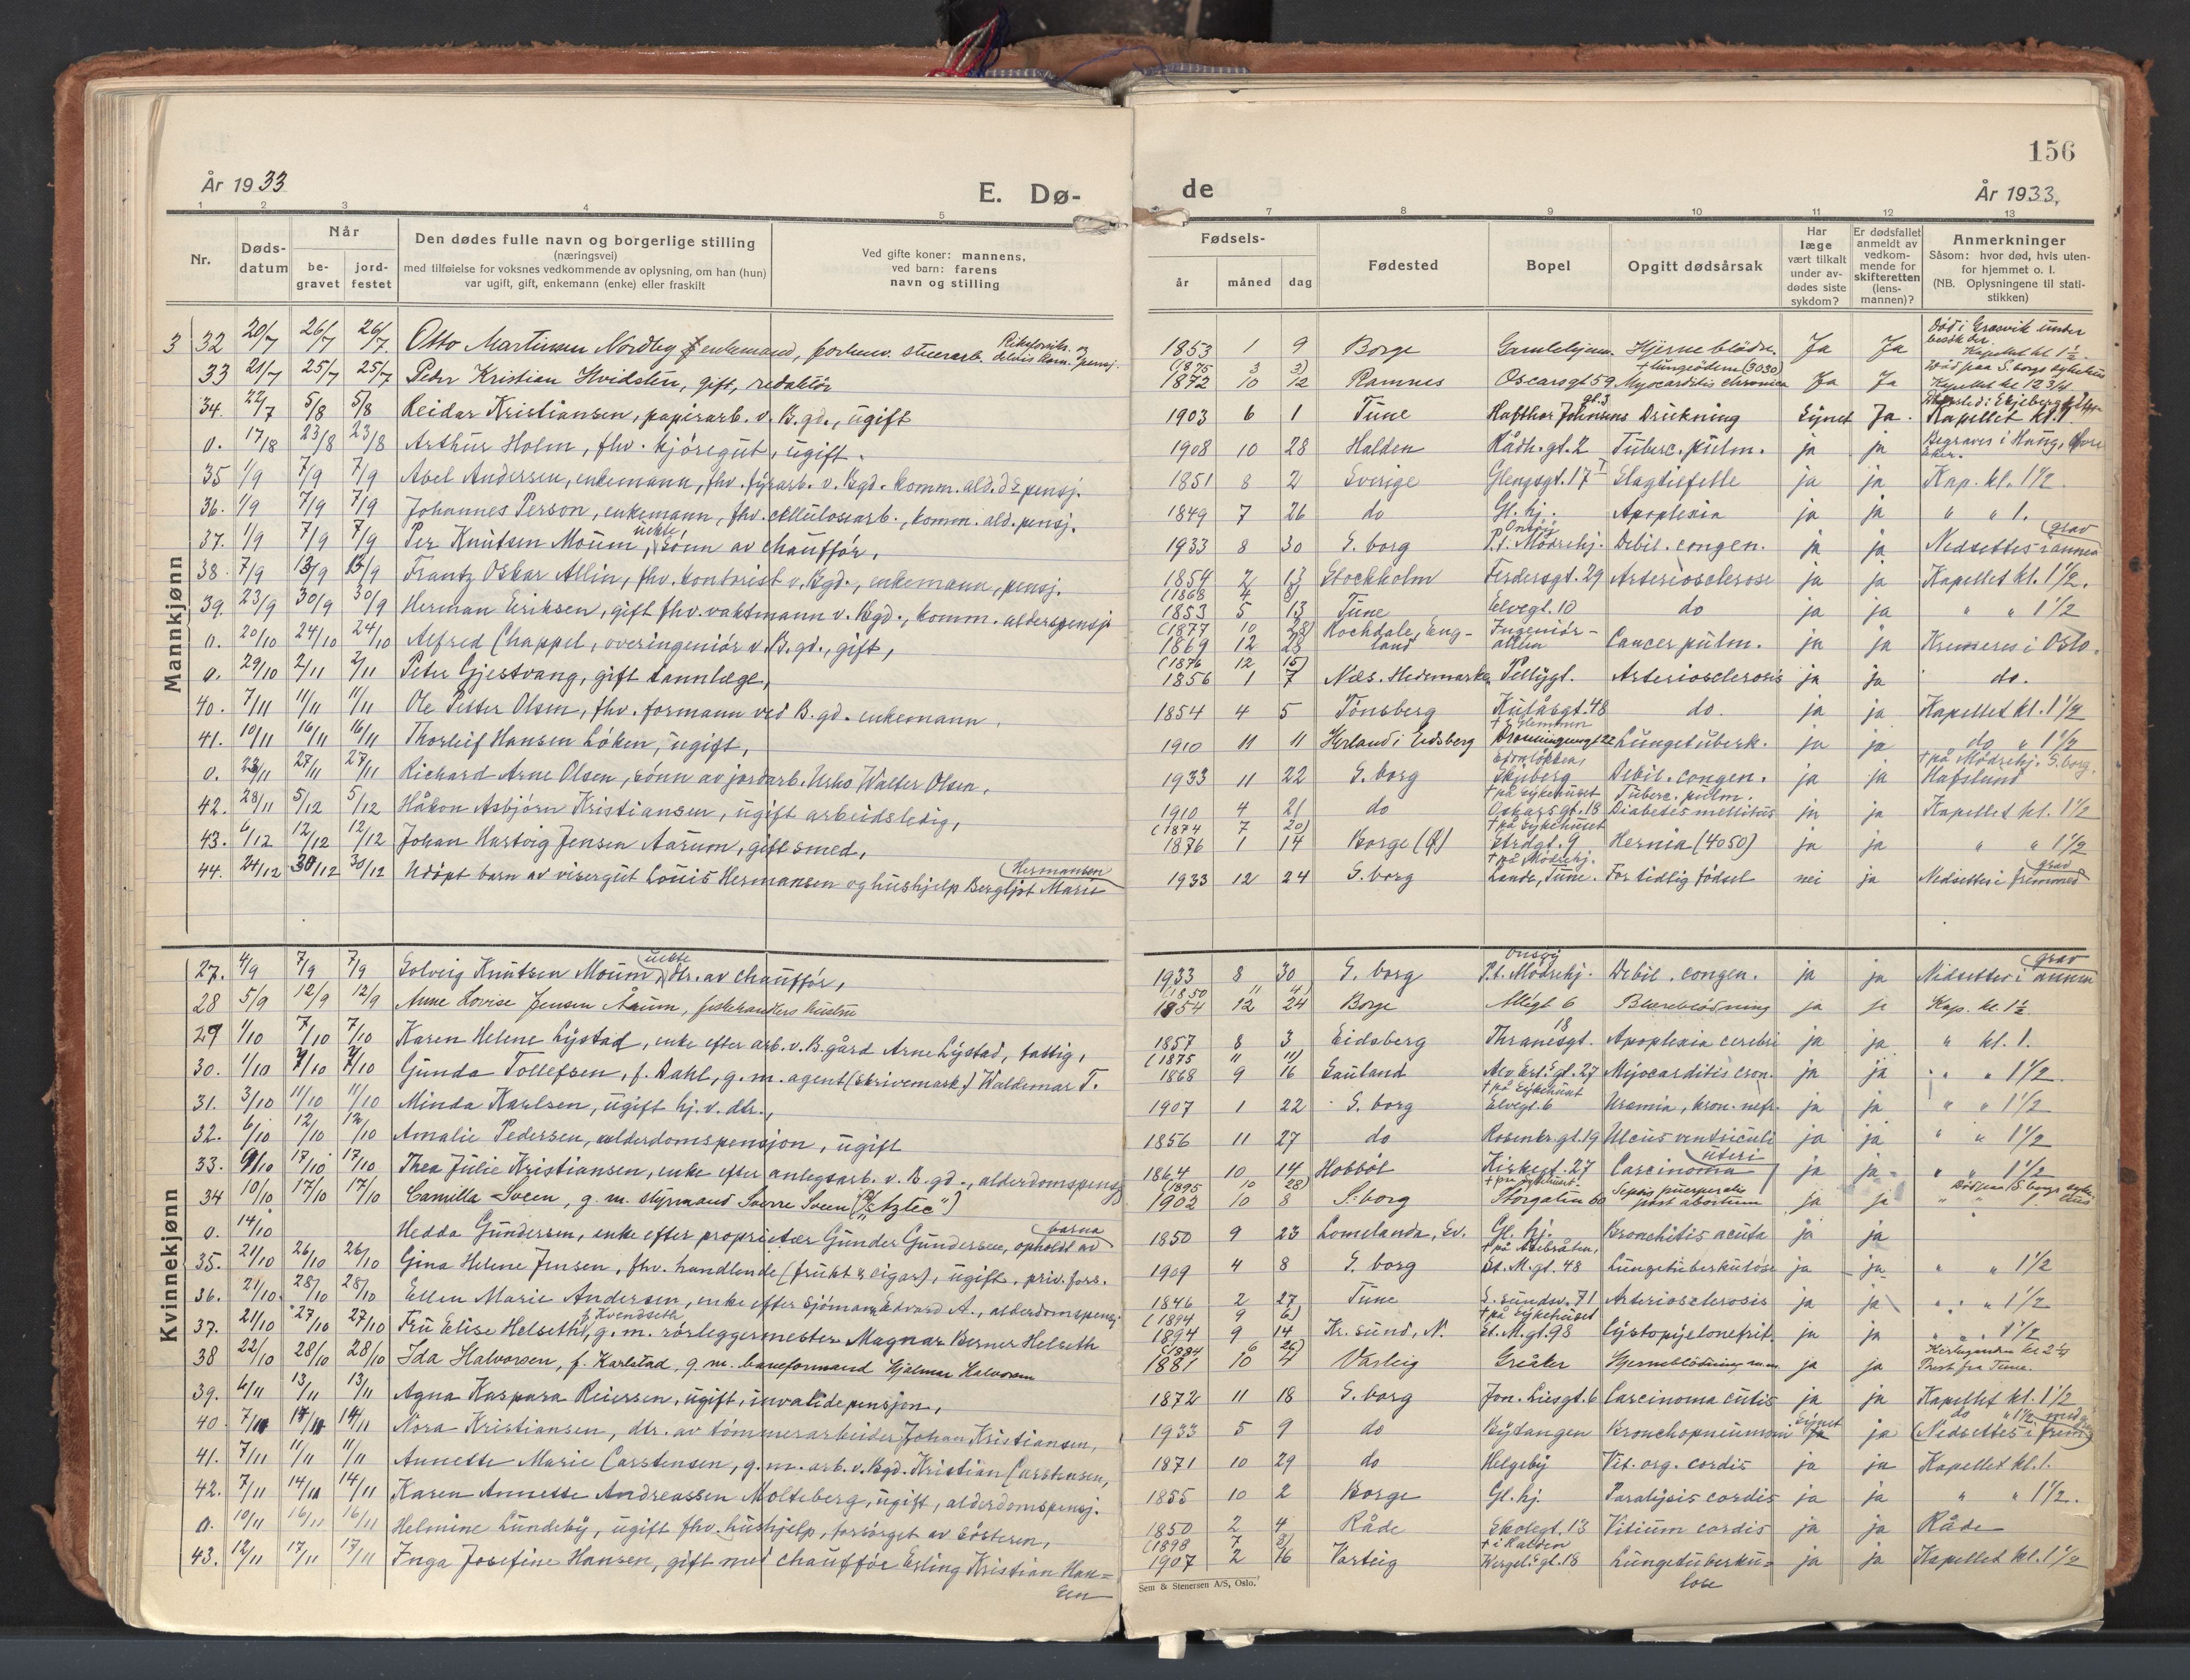 156
År 1933
E. Dø-
de
År 1933.
1 2 3 4 5 7 8 9 10 11 12 13
Nr.
Døds-
datum
Når
be-
gravet
jord-
festet
Den dødes fulle navn og borgerlige stilling
(næringsvei)
med tilføielse for voksnes vedkommende av oplysning, om han (hun)
var ugift, gift, enkemann (enke) eller fraskilt
Ved gifte koner: mannens,
ved barn: farens
navn og stilling
Fødsels-
år måned dag
Fødested
Bopel
Opgitt dødsårsak
Har
læge
vært tilkalt
under av-
dødes siste
sykdom?
Er dødsfallet
anmeldt av
vedkom-
mende for
skifteretten
(lens-
mannen)?
Anmerkninger
Såsom: hvor død, hvis uten-
for hjemmet o. l.
(NB. Oplysningene til stati-
stikken)
Mankjønn
32 20/7 26/7 26/7 Otto Martinsen Nordby enkemand, forhenv. stuerarb. 1853 1 9 Borge Gamlehjem. Hjerneblødn. Ja Ja Død i Græsvik under besøk der. Kapellet kl 1½.
33 21/7 25/7 25/7 Peder Kristian Hvidsten, gift, redaktør (1875 3 3) 1872 10 12 Ramnes Oscarsgt 59 Myocarditis chronica + lungeödem (3030) Ja Ja Død paa S.borgs sykehus Kapellet kl 12 3/4
34. 22/7 5/8 5/8 Reidar Kristiansen, papirarb. v. B.gd., ugift 1903 6 1 Tune Hafthor Johnsens gt. 3 Drukning Synet Ja. Kapellet kl. 1.
o. 17/8 23/8 23/8 Arthur Holm, fhv. kjøregut, ugift. 1908 10 28 Halden Rådh.gt. 2 Tuberc. pulm. ja ja Begraves i Haug, Øvre Eker.
35 1/9 7/9 7/9 Abel Andersen, enkemann, fhv. fyrarb. v. Bgd. komm. ald. ds pensj. 1851 8 2 Sverige Glengsgt. 17 I Slagtilfelle ja ja Kap. kl. 1½
36. 1/9 7/9 7/9 Johannes Person, enkemann, fhv. cellulosearb., komm. ald. pensj. 1849 7 26 do Gl. hj. Apoplexia ja ja " " 1.
37. 1/9 7/9 7/9 Per Knutsen Moum, uekte, sønn av chauffør, 1933 8 30 S. borg Onsøy P.t. Mødrehj. Debil. congen. ja ja Nedsettes i annen grav
38. 7/9 13/9 13/9 Frantz Oskar Allin, fhv. kontorist v. Bgd., enkemann, pensj. 1854 2 13 Stockholm Ferdersgt. 29 Arteriosclerose ja ja Kapellet kl. 1½.
39. 23/9 30/9 30/9 Herman Eriksen, gift fhv. vaktmann v. Bgd., komm. alderspensj (1868 4 8) 1853 5 13 Tune Elvegt. 10 do ja ja " " 1½
o. 20/10 24/10 24/10 Alfred Chappel, overingeniør v. B.gd., gift, (1877 10 28) 1869 12 28 Rochdale, England Ingeniør-alleen Cancer pulm. ja ja Kremeres i Oslo.
o. 29/10 2/11 2/11 Peter Gjestvang, gift tannlæge, (1876 12 15) 1856 1 7 Næs. Hedemarken Pellygt. Arteriosclerosis ja ja do.
40. 7/11 11/11 11/11 Ole Petter Olsen, fhv. formann ved B.gd. enkemann, 1854 4 5 Tønsberg Kulåsgt. 48 do. ja ja Kapellet kl. 1½
41. 10/11 16/11 16/11 Thorleif Hansen Løken, ugift, 1910 11 11 Herland i Eidsberg + i Glemmen Dronningensgt 22 Lungetuberk. ja ja do " 1½
o. 23/11 27/11 27/11 Richard Arne Olsen, sønn av jordarb. Urho Walter Olsen, 1933 11 22 S. borg Skjeberg Debil. congen. ja ja + på Mødrehj. S.borg. Hafslund
42. 28/11 5/12 5/12 Håkon Asbjørn Kristiansen, ugift arbeidsledig, 1910 4 21 do + på sykehuset Oskars gt. 18 Tuberc. pulm. Diabetes mellitus ja ja Kapellet kl. 1½
43. 6/12 12/12 12/12 Johan Hartvig Jensen Aarum, gift smed, (1874 7 20) 1876 1 14 Borge + på sykehuset Strdgt. 9 Hernia (4050) ja ja " " 1½
44. 24/12 30/12 30/12 Udøpt barn av visergut Louis Hermansen og hushjelp Bergljot Marie Hermansen 1933 12 24 S. borg + på Mødrehj. Lande, Tune. For tidlig fødsel nei ja Nedsettes i fremmed grav
Kvinnekjønn
27. 4/9 7/9 7/9 Solveig Knutsen Moum, uekte dtr. av chauffør, 1933 8 30 S. borg Onsøy P.t. Mødrehj. Debil. congen. ja ja Nedsettes i annen grav
28 5/9 12/9 12/9 Anne Lovise Jensen Årum, fiskehandlers hustru (1850 11 4) 1854 12 24 Borge Allégt 6 Blæreblødning ja ja Kap. kl. 1½
29 1/10 7/10 7/10 Karen Helene Lystad, enke efter arb. v. B.gård Arne Lystad, fattig, 1857 8 3 Eidsberg Thranesgt. 18 Apoplexia cerebri ja ja " kl. 1.
30. 1/10 7/10 7/10 Gunda Tollefsen, f. Dahl, g. m. agent (skrivemask.) Waldemar T. (1875 11 11) 1868 9 16 Sauland 27 Myocarditis cron. ja ja " " 1½
31. 3/10 11/10 11/10 Minda Karlsen, ugift hj. v. dtr., 1907 1 22 S. borg + på sykehuset Elvegt. 6 Uremia, kron. nefr. ja ja " " 1½
32. 6/10 12/10 12/10 Amalie Pedersen, alderdomspensjon, ugift 1856 11 27 do Rosenkr.gt. 19 Ulcus ventriculi ja ja " " 1½
33. 9/10 17/10 17/10 Thea Julie Kristiansen, enke efter anlegsarb. v. B.gd., alderdomspensj 1864 10 14 Hobbøl Kirkegt. 27 Carcinoma uteri ja ja " " 1½
34 10/10 17/10 17/10 Camilla Sveen, g. m. styrmand Sverre Sveen (D/S "Aztec") (1895 10 28) 1902 10 8 S. borg + på sykehuset Storgaten 60 Sepsis puerperalis post abortum ja ja Død paa S.borgs sykehus " " 1.
o. 14/10 Hedda Gundersen, enke efter proprietær Gunder Gundersen, opholdt av barna 1850 9 23 Lomelanda, Sv. Gl. hj. Bronchitis acuta ja ja
35. 21/10 26/10 26/10 Gina Helene Jensen, fhv. handlende (frukt & cigar), ugift, priv. fors. 1909 4 8 S. borg St. M. gt. 48 Lungetuberkulose ja ja " " 1½
36. 21/10 28/10 28/10 Ellen Marie Andersen, enke efter sjømann Edvard A., alderdomspensj. 1846 2 27 Tune S. sundsv. 71 Arteriosclerosis ja ja " " 1½
37. 21/10 27/10 27/10 Fru Elise Helseth, f. Kvendseth g. m. rørleggermester Magnar Berner Helseth (1894 9 6) 1894 9 14 Kr. sund, N. + på sykehuset St. M. gt. 98 Cystopyelonefrit. ja ja " " 1½
38 22/10 28/10 28/10 Ida Halvorsen, f. Karlstad, g. m. baneformand Hjalmar Halvorsen (1884 6 26) 1881 10 4 Varteig Greåker Hjerneblødning ja ja Prest fra Tune.
39. 6/11 13/11 13/11 Agna Kaspara Reiersen, ugift, invalidepensjon, 1872 11 18 S. borg Jon. Liesgt. 6 Carcinoma cutis ja ja Kapellet kl. 1½
40. 7/11 14/11 14/11 Nora Kristiansen, dtr. av tømmerarbeider Johan Kristiansen, 1933 5 9 do Bytangen Bronchopneumoni Synet ja do " 1½ (Nedsettes i frem)
41. 7/11 11/11 11/11 Annette Marie Carstensen, g. m. arb. v. Bgd. Kristian Carstensen, 1871 10 29 do Helgeby Vit. org. cordis ja ja Kapellet kl. 1.
42. 7/11 14/11 14/11 Karen Annette Andreassen Molteberg, ugift, alderdomspensj. 1855 10 2 Borge Gl. hj. Paralysis cordis ja ja " " 1½.
o. 10/11 16/11 16/11 Helmine Lundeby, ugift fhv. hushjelp, forsørget av søsteren, 1850 2 4 Råde Skolegt. 13 Vitium cordis ja ja Råde
43. 12/11 17/11 17/11 Inga Josefine Hansen, gift med chauffør Erling Kristian Han=sen (1898 7 3) 1907 2 16 Varteig + i Halden Wergel.s gt. 18 Lungetuberku=lose ja ja Kapellet kl. 1½
Sem & Stenersen A/S, Oslo.